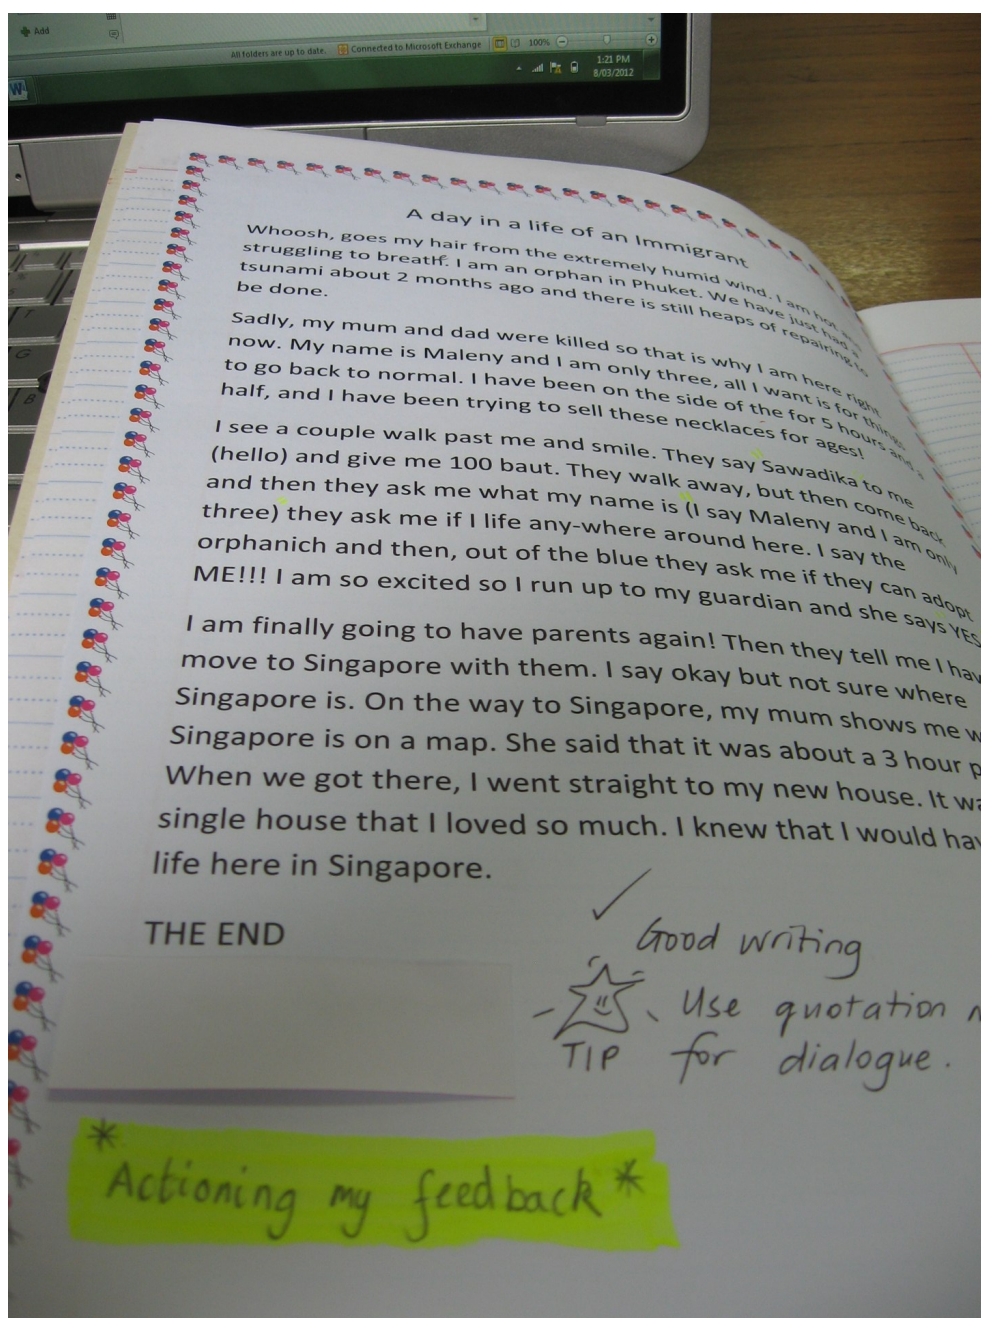 Add
All folders are up to date. Connected to Microsoft Exchange 100%
1:21 PM
8/03/2012
W
A day in a life of an Immigrant
Whoosh, goes my hair from the extremely humid wind. I am hot
struggling to breath. I am an orphan in Phuket. We have just had a
tsunami about 2 months ago and there is still heaps of repairing to
be done.
Sadly, my mum and dad were killed so that is why I am here right
now. My name is Maleny and I am only three, all I want is for things
to go back to normal. I have been on the side of the for 5 hours and a
half, and I have been trying to sell these necklaces for ages!
I see a couple walk past me and smile. They say Sawadika to me
(hello) and give me 100 baut. They walk away, but then come back
and then they ask me what my name is (I say Maleny and I am only
three) they ask me if I life any-where around here. I say the
orphanich and then, out of the blue they ask me if they can adopt
ME!!! I am so excited so I run up to my guardian and she says YES
I am finally going to have parents again! Then they tell me I
move to Singapore with them. I say okay but not sure where
Singapore is. On the way to Singapore, my mum shows me
Singapore is on a map. She said that it was about a 3 hour
When we got there, I went straight to my new house. It
single house that I loved so much. I knew that I would
life here in Singapore.
THE END
Good writing
Use quotation
TIP for dialogue.
*Actioning my feedback*